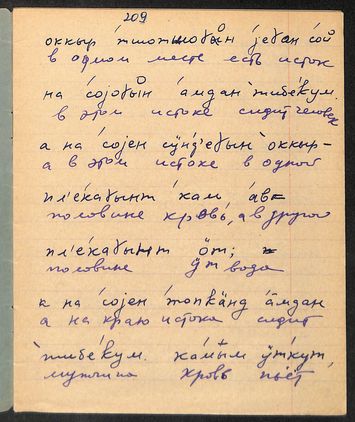 209
оккыр тшотшоɣы̊н је́ɣан со́й
в одном месте есть исток
на со́јоɣы̊н а́мдан тибе́кум.
в этом истоке сидит человек
а на со́јен сӱ́нд'еɣын оккыр-
а в этом истоке в одной
пле́каɣынт кам а́вк
половине кровь, а в другой
пле́каɣынт ӧт;
половине ӱт вода
а на со́јен топкӓ́нд а́мдан
а на краю истока сидит
тибе́кум. ка́мы̊м ӱ́ткут,
мужчина кровь пьёт